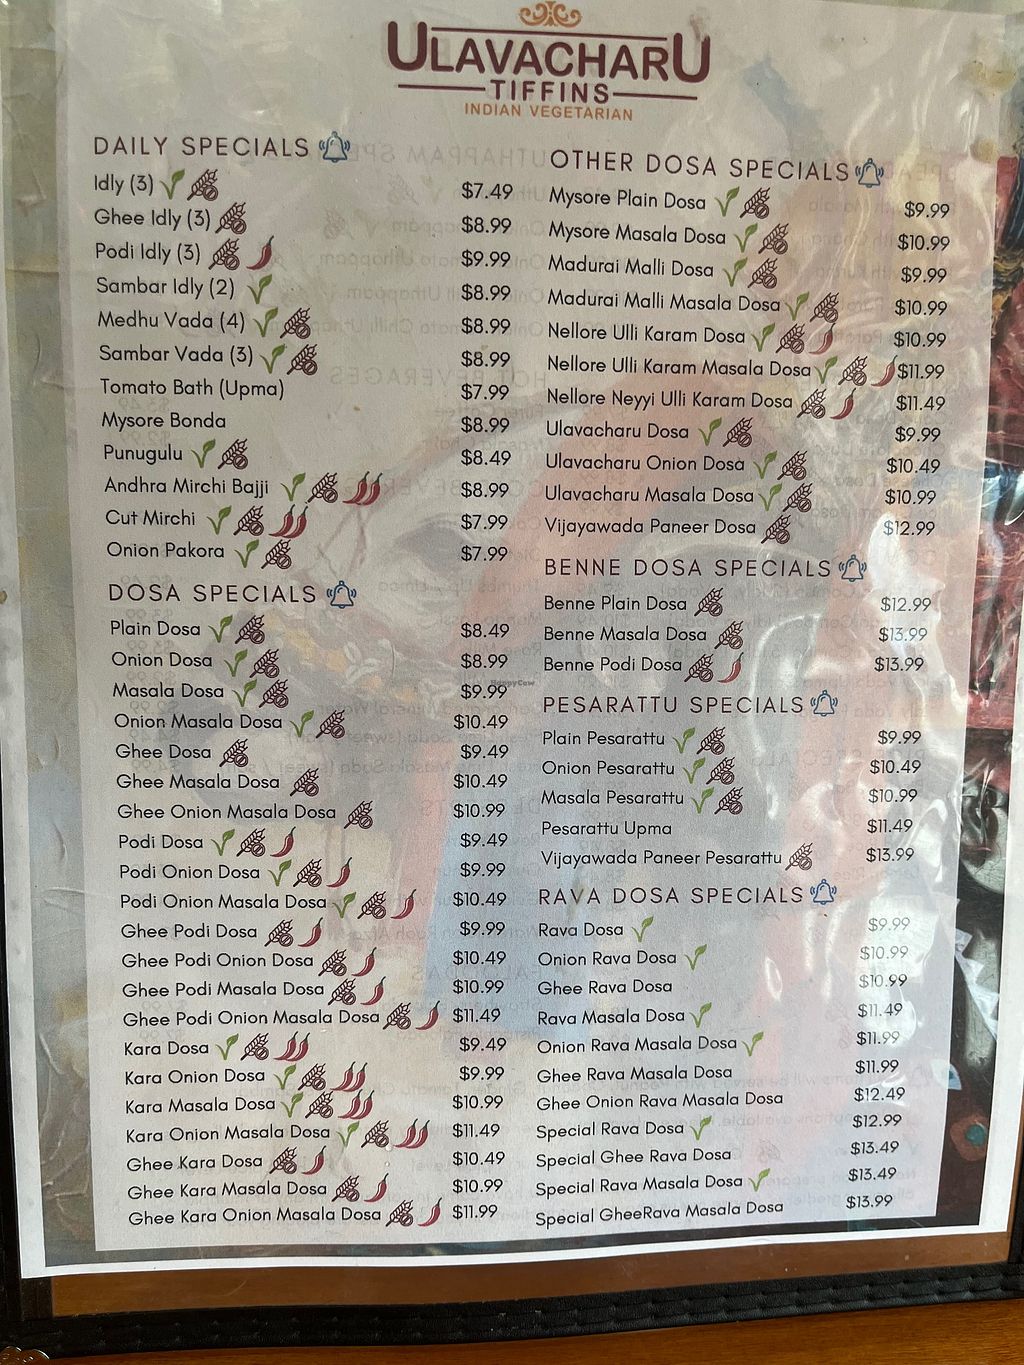 ULAVACHARU
TIFFINS
INDIAN VEGETARIAN
DAILY SPECIALS
Idly (3) $7.49
Ghee Idly (3) $8.99
Podi Idly (3) $9.99
Sambar Idly (2) $8.99
Medhu Vada (4) $8.99
Sambar Vada (3) $8.99
Tomato Bath (Upma) $7.99
Mysore Bonda $8.99
Punugulu $8.49
Andhra Mirchi Bajji $8.99
Cut Mirchi $7.99
Onion Pakora $7.99
DOSA SPECIALS
Plain Dosa $8.49
Onion Dosa $8.99
Masala Dosa $9.99
Onion Masala Dosa $10.49
Ghee Dosa $9.49
Ghee Masala Dosa $10.49
Ghee Onion Masala Dosa $10.99
Podi Dosa $9.49
Podi Onion Dosa $9.99
Podi Onion Masala Dosa $10.49
Ghee Podi Dosa $9.99
Ghee Podi Onion Dosa $10.49
Ghee Podi Masala Dosa $10.99
Ghee Podi Onion Masala Dosa $11.49
Kara Dosa $9.49
Kara Onion Dosa $9.99
Kara Masala Dosa $10.99
Kara Onion Masala Dosa $11.49
Ghee Kara Dosa $10.49
Ghee Kara Masala Dosa $10.99
Ghee Kara Onion Masala Dosa $11.99
OTHER DOSA SPECIALS
Mysore Plain Dosa $9.99
Mysore Masala Dosa $10.99
Madurai Malli Dosa $9.99
Madurai Malli Masala Dosa $10.99
Nellore Ulli Karam Dosa $10.99
Nellore Ulli Karam Masala Dosa $11.99
Nellore Neyyi Ulli Karam Dosa $11.49
Ulavacharu Dosa $9.99
Ulavacharu Onion Dosa $10.49
Ulavacharu Masala Dosa $10.99
Vijayawada Paneer Dosa $12.99
BENNE DOSA SPECIALS
Benne Plain Dosa $12.99
Benne Masala Dosa $13.99
Benne Podi Dosa $13.99
PESARATTU SPECIALS
Plain Pesarattu $9.99
Onion Pesarattu $10.49
Masala Pesarattu $10.99
Pesarattu Upma $11.49
Vijayawada Paneer Pesarattu $13.99
RAVA DOSA SPECIALS
Rava Dosa $9.99
Onion Rava Dosa $10.99
Ghee Rava Dosa $10.99
Rava Masala Dosa $11.49
Onion Rava Masala Dosa $11.99
Ghee Rava Masala Dosa $11.99
Ghee Onion Rava Masala Dosa $12.49
Special Rava Dosa $12.99
Special Ghee Rava Dosa $13.49
Special Rava Masala Dosa $13.49
Special GheeRava Masala Dosa $13.99
HappyCow